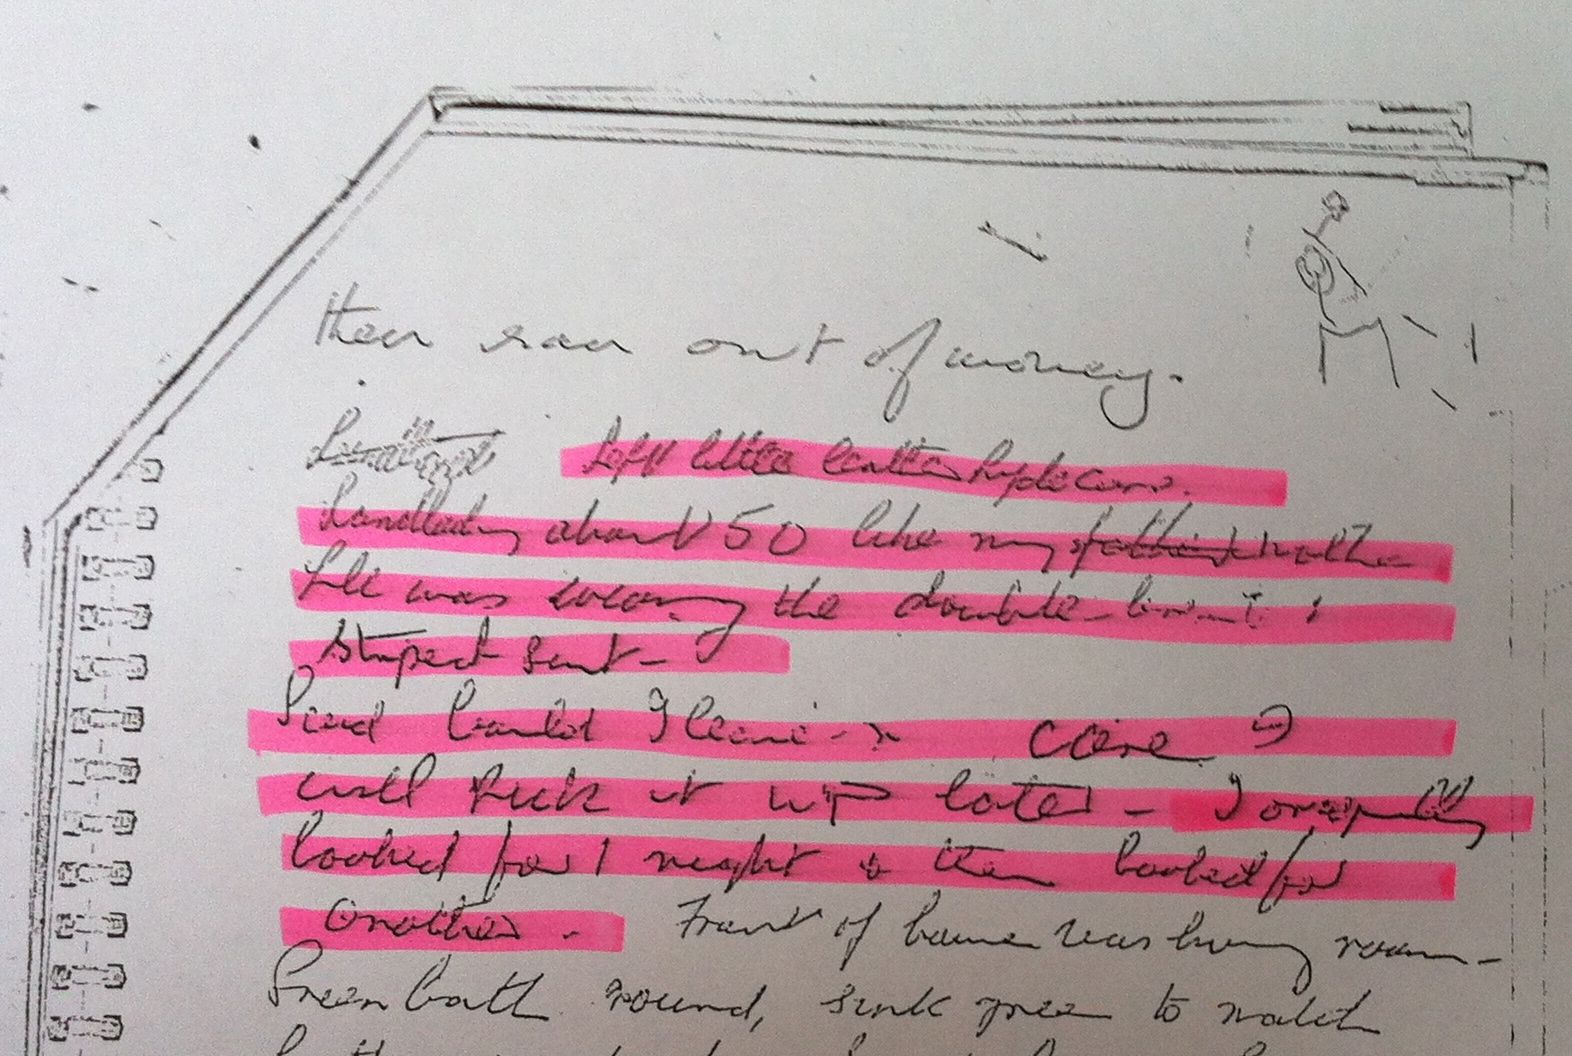 then ran out of money.
Left little leather type case.
Landlady about 50 like my mother
He was wearing the double
striped suit -
Said could I leave case &
will pick it up later - I originally
booked for 1 night & then booked for
another - Front of house was living room -
Green bath round, sink green to match